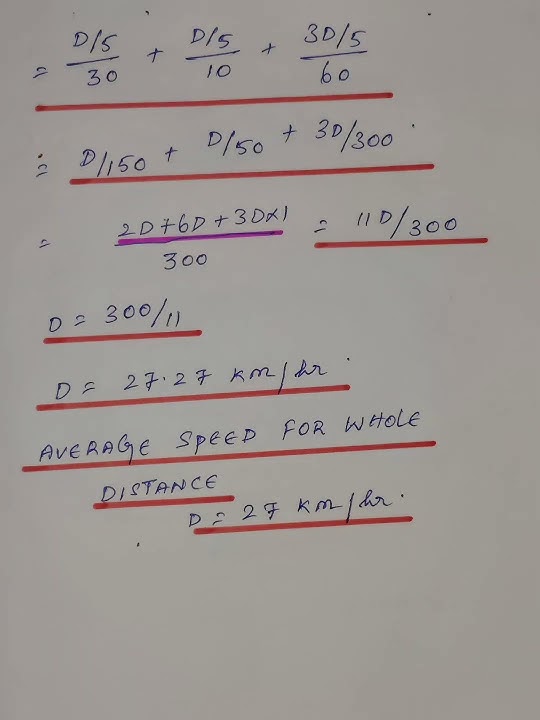 = D/5/30 + D/5/10 + 3D/5/60
= D/150 + D/50 + 3D/300
= 2D+6D+3D×1/300 = 11D/300
D = 300/11
D = 27.27 km/hr.
AVERAGE SPEED FOR WHOLE
DISTANCE
D = 27 km/hr.